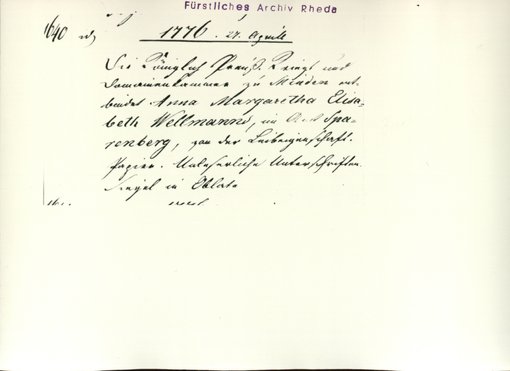 Fürstliches Archiv Rheda
1640
1776. 27. Aprill
Die Königlich Preuß. Kriegs und
Domainenkammer zu Minden ent-
bindet Anna Margaretha Elisa-
beth Wellmanns, im Amt Spa-
renberg, von der Leibeigenschaft.
Papier. Unleserliche Unterschriften.
Siegel in Oblate